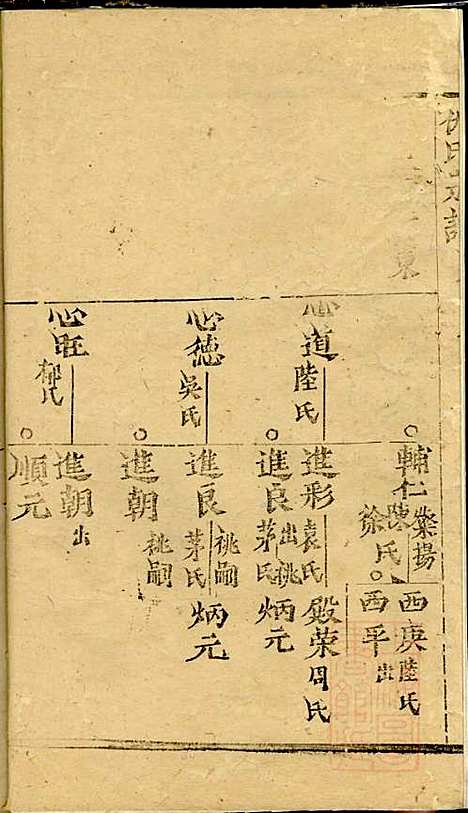 氏
東
輔仁
榮揚
陳氏
徐
西庚
陸氏
西平
出
心道
陸氏
進形
袁氏
殿荣
周氏
進良
出祧
茅氏
炳元
心德
吳氏
進良
祧嗣
茅氏
炳元
進朝
祧嗣
心旺
郁氏
進朝
出
順元